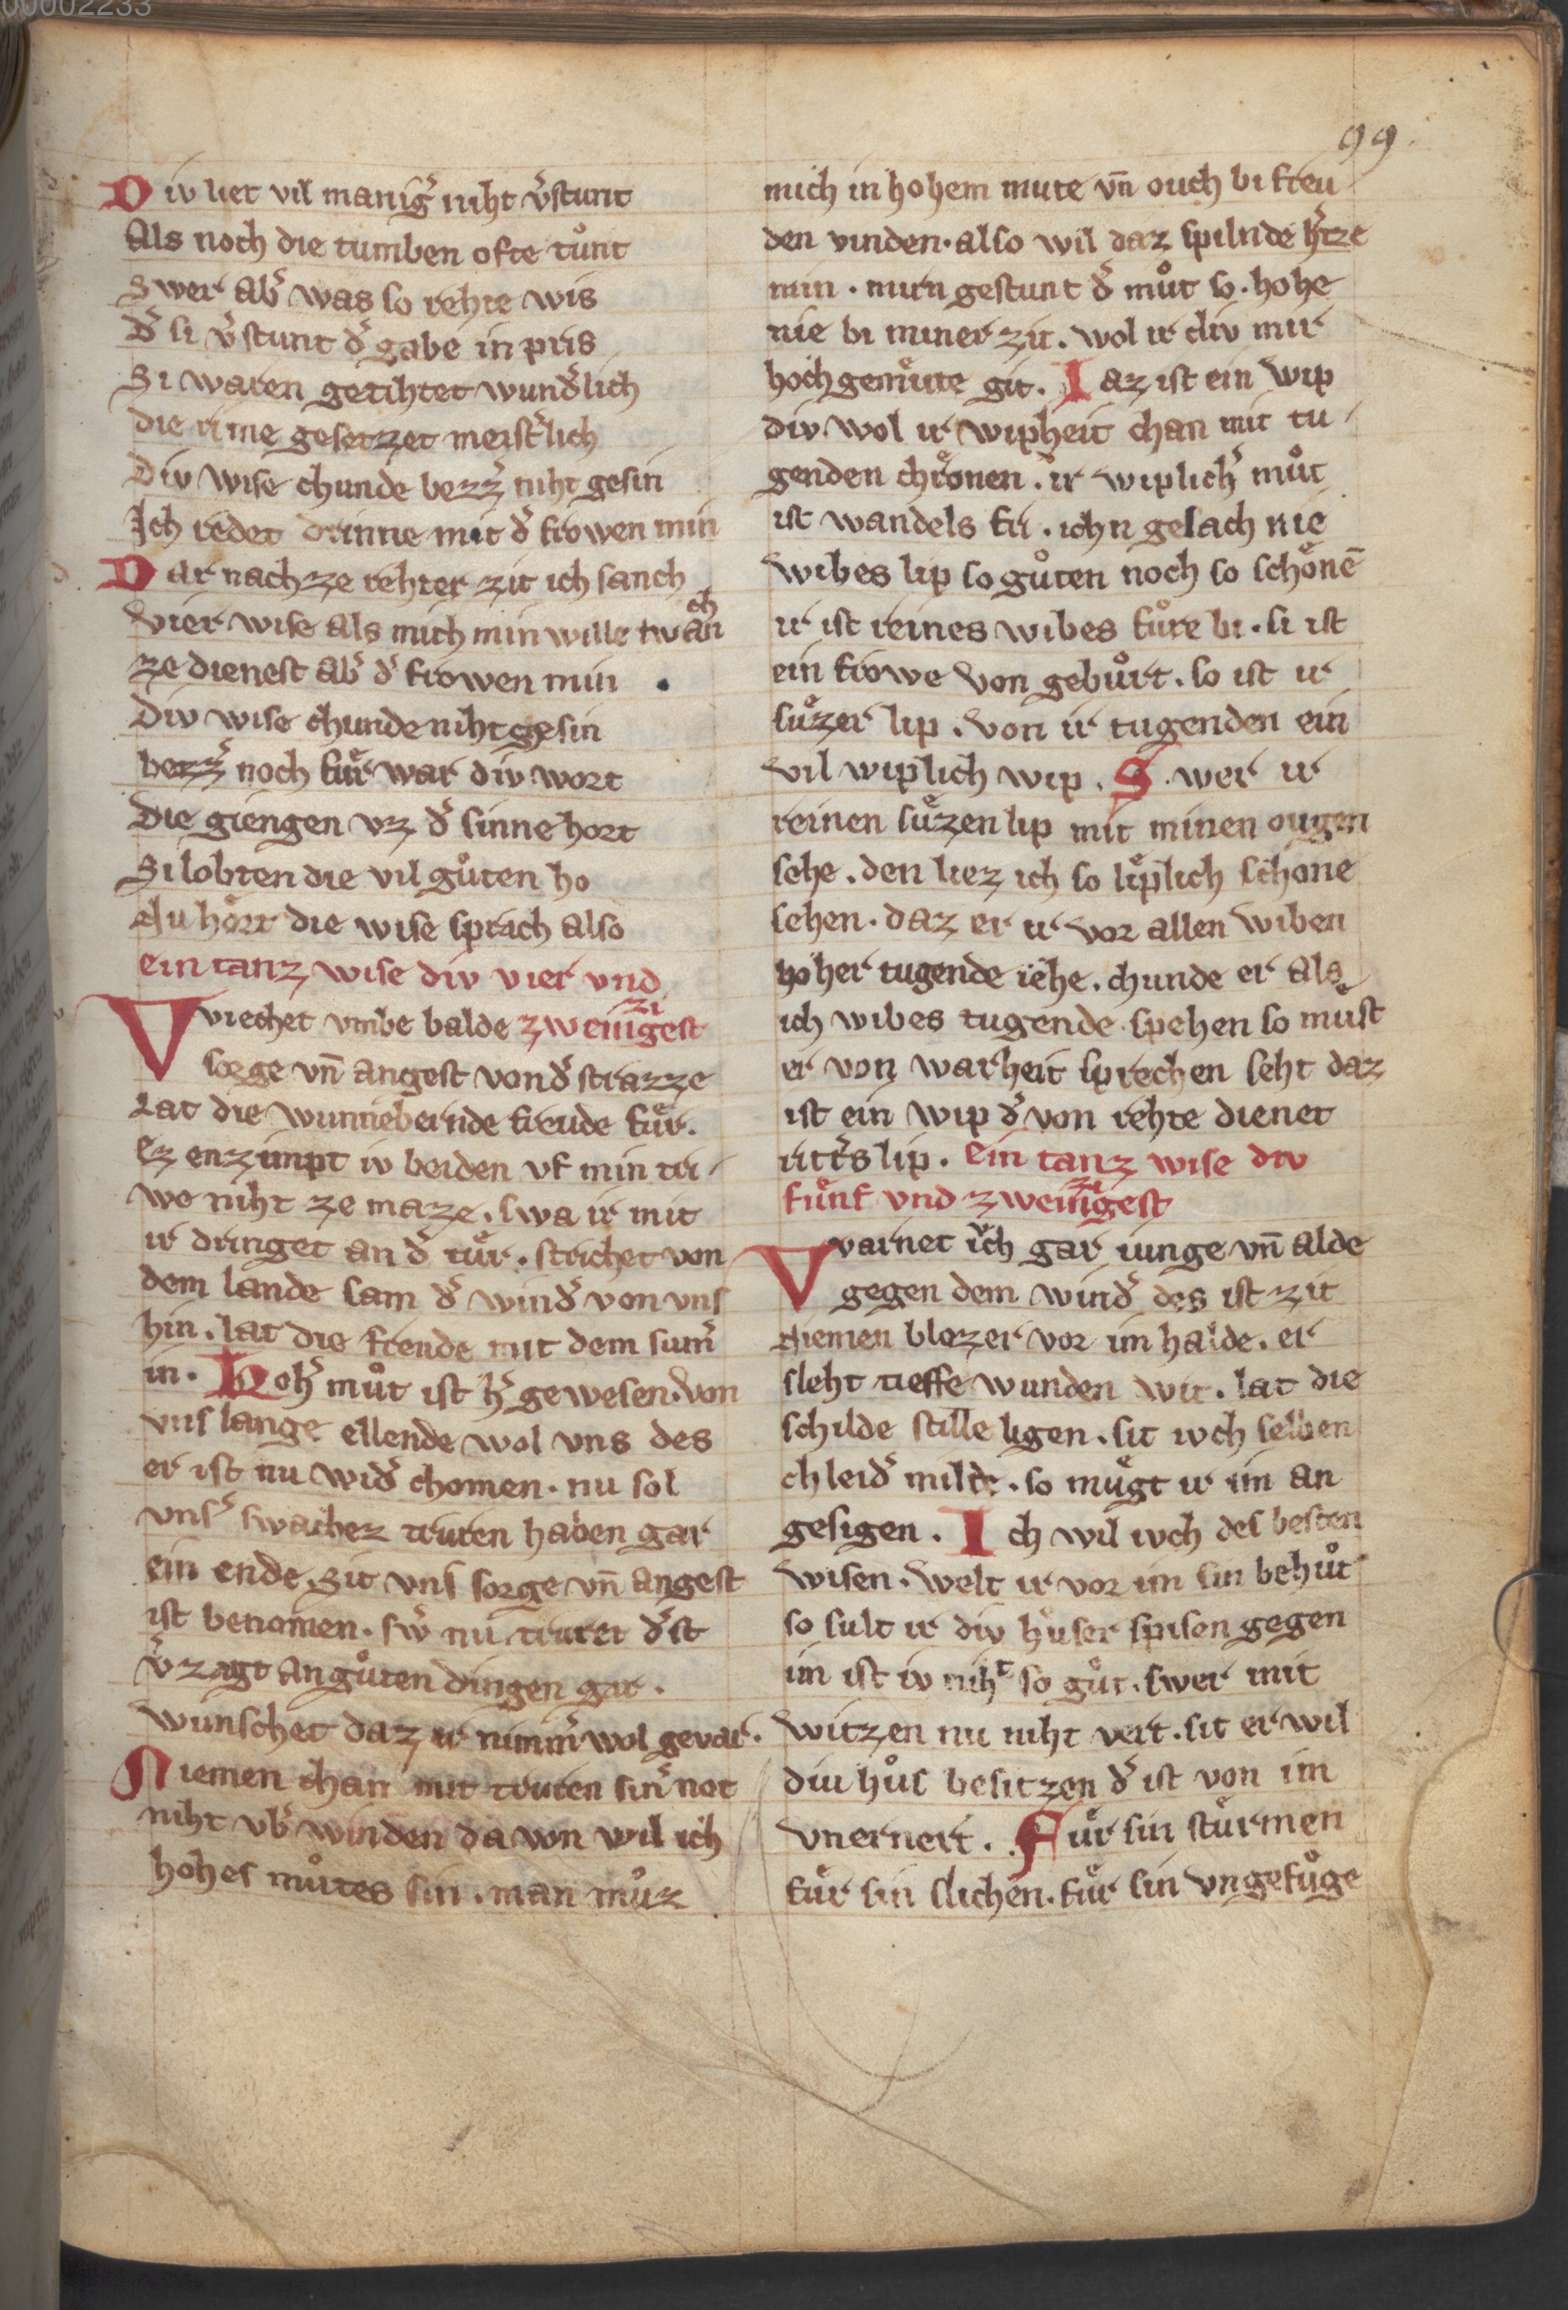 00002233
99
Div liet vil manig͛ niht v͛stunt
Als noch die tumben ofte tuͦnt
Swer ab͛ was so rehte wis
d͛ si v͛stunt d͛ gabe in pris
Si waren getihtet wund͛lich
die rime gesetzet meist͛lich
Div wise chunde bezz͛ niht gesin
Ich redet drinne mit d͛ frowen min
Dar nach ze rehter zit ich sanch
vier wise als mich min wille twanch
ze dienest ab͛ d͛ frowen min
Div wise chunde niht gesin
bezz͛ noch fuͤr war div wort
Die giengen vz d͛ sinne hort
Si lobten die vil guͦten ho
Nu hoͤrt die wise sprach also
ein tanz wise div vier vnd
zweinzigest
Vvichet vmbe balde
sorge vn̄ angest von d͛ strazze
Lat die wunnebernde freude fuͤr.
Ez enzimpt iv beiden vf min tri
we niht ze maze. swa ir mit
ir dringet an d͛ tuͤr. strichet von
dem lande sam d͛ wind͛ von vns
hin. lat die freude mit dem sum͛
in. Hoh͛ muͦt ist h͛ gewesen. von
vns lange ellende wol vns des
er ist nu wid͛ chomen. nu sol
vns͛ swachez truren haben gar
ein ende. Sit vns sorge vn̄ angest
ist benomen. sw͛ nu truret d͛st
v͛zagt an guͦten dingen gar.
wunschet daz ir nimm͛ wol gevar.
Niemen chan mit truren sin͛ not
niht vb͛ winden da von wil ich
hohes muͦtes sin. man muͦz
mich in hohem mute vn̄ ouch bi freu
den vinden. also wil daz spilnde h͛tze
min. mirn gestunt d͛ muͦt so. hohe
nie bi miner zit. wol ir div mir
hochgemuͤte git. Iaz ist ein wip
div. wol ir wipheit chan mit tu
genden chroͤnen. ir wiplich͛ muͦt
ist wandels fri. ichn gesach nie
wibes lip so guͦten noch so schoͤnē
ir ist reines wibes fuͦre bi. si ist
ein frowe von gebuͦrt. so ist ir
suͤzer lip. von ir tugenden ein
vil wiplich wip. Swer ir
reinen suͤzen lip mit minen ougen
sehe. den liez ich so lieplich schone
sehen. daz er ir vor allen wiben
hoher tugende iehe. chunde er als
ich wibes tugende spehen so muͤst
er von warheit sprechen seht daz
ist ein wip d͛ von rehte dienet
ritt͛s lip. ein tanz wise div
fuͤnf vnd zweinzigest
Vvarnet iͮch gar iunge vn̄ alde
gegen dem wind͛ des ist zit
niemen blozer vor im halde. er
sleht tieffe wunden wit. lat die
schilde stille ligen. sit ivch selben
chleid͛ milde. so muͤgt ir im an
gesigen. Ich wil ivch des besten
wisen. welt ir vor im sin behuͦt
so sult ir div huser spisen gegen
im ist iv niht so guͦt. swer mit
witzen nu niht vert. sit er wil
diu huͦs besitzen d͛ ist von im
vnernert. Fuͤr sin stuͤrmen
fuͤr sin slichen. fuͤr sin vngefuͦge